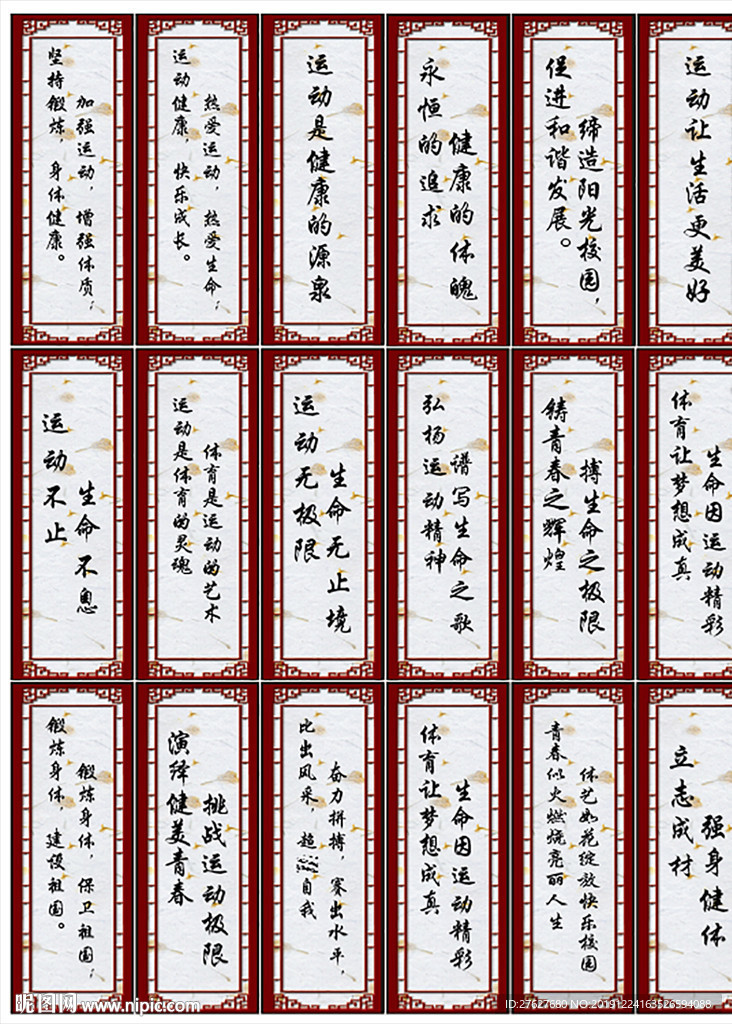 加强运动，增强体质；
坚持锻炼，身体健康。
热爱运动，热爱生命；
运动健康，快乐成长。
运动是健康的源泉
健康的体魄
永恒的追求
缔造阳光校园，
促进和谐发展。
运动让生活更美好
生命不息
运动不止
体育是运动的艺术
运动是体育的灵魂
生命无止境
运动无极限
谱写生命之歌
弘杨运动精神
搏生命之极限
铸青春之辉煌
生命因运动精彩
体育让梦想成真
锻炼身体，保卫祖国；
锻炼身体，建设祖国。
挑战运动极限
演绎健美青春
奋力拼搏，赛出水平，
比出风采，超自我
生命因运动精彩
体育让梦想成真
体艺如花绽放快乐校园
青春似火燃烧亮丽人生
强身健体
立志成材
昵图网 www.nipic.com
ID:27627680 NO:20191224163526594088